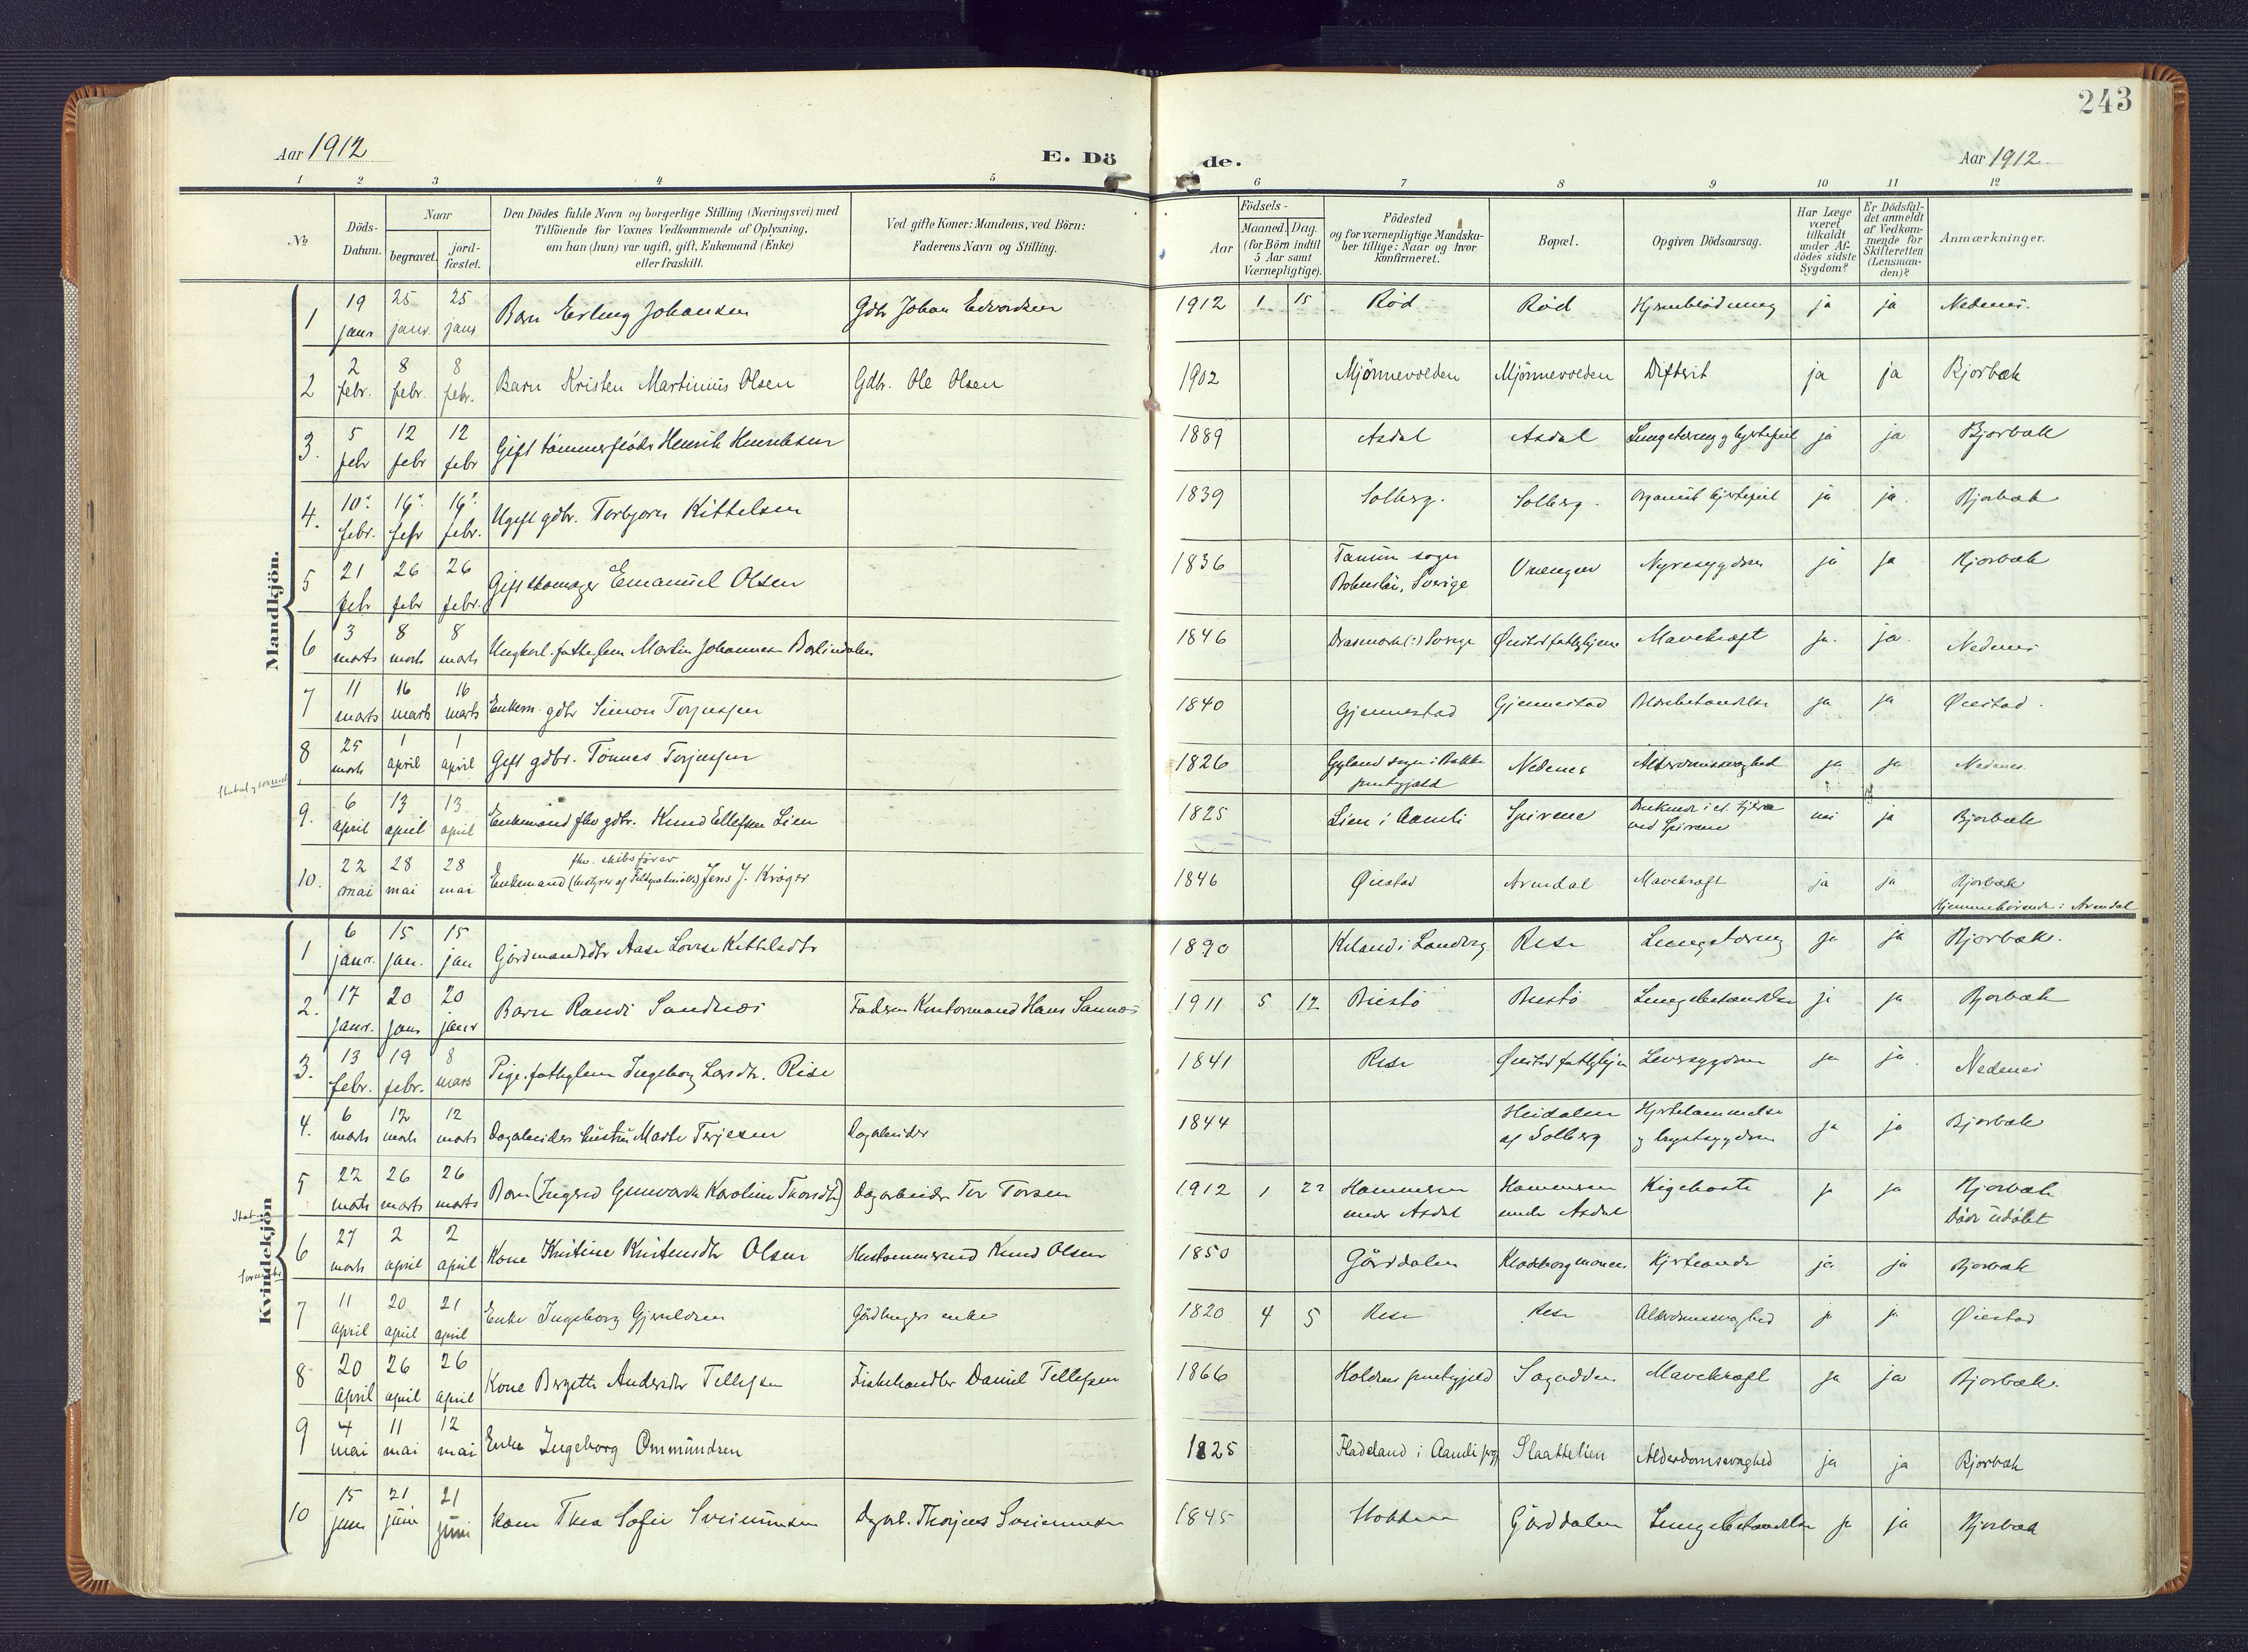 243
Aar 1912
E. Dö de.
Aar 1912
1 2 3 4 5 6 7 8 9 10 11 12
No
Döds-Datum.
Naar
begravet.
jord-fæstet.
Den Dödes fulde Navn og borgerlige Stilling (Næringsvei) med
Tilföiende for Voxnes Vedkommende af Oplysning,
om han (hun) var ugift, gift, Enkemand (Enke)
eller fraskilt.
Ved gifte Koner: Mandens, ved Börn:
Faderens Navn og Stilling.
Födsels-
Aar
Maaned. Dag.
(for Börn indtil
5 Aar samt
Værnepligtige).
Födested
og for værnepligtige Mandska-
ber tillige: Naar og hvor
konfirmeret.
Bopæl.
Opgiven Dödsaarsag.
Har Læge
været
tilkaldt
under Af-
dödes sidste
Sygdom?
Er Dödsfal-
det anmeldt
af Vedkom-
mende for
Skifteretten
(Lensman-
den)?
Anmærkninger.
Mandkjön.
1 19 janr 25 janr. 25 janr Barn Erling Johansen Gdbr Johan Edvardsen 1912 1 15 Rød Rød Hjerneblødning ja ja Nedenes.
2 2 febr. 8 febr. 8 febr. Barn Kristen Martinius Olsen Gdbr. Ole Olsen 1902 Mjönnevolden Mjönnevolden Difterit ja ja Bjorbæk
3. 5 febr 12 febr 12 febr Gift tømmerfløder Henrik Henriksen 1889 Asdal Asdal Lungetæring og hjertefeil ja ja Bjorbæk
4. 10. febr. 16. febr 16. febr. Ugift gdbr. Torbjorn Kittelsen 1839 Solberg. Solberg. Organisk hjertefeil ja ja. Bjorbæk
5 21 febr 26 febr 26 febr. Gift skomager Emanuel Olsen 1836 Tanum sogn Bohuslän, Sverige Vrengen Nyresygdom ja ja Bjorbæk
6 3 marts 8 marts 8 marts Ungkarl. fattiglem Martin Johannes Berlindalen 1846 Sverige Øiestad fattighjem Mavekræft ja. ja. Nedenes
7 11 marts 16 marts 16 marts Enkem. gdbr Simon Terjesen 1840 Gjennestad Gjennestad Blærebetændelse ja ja Øiestad.
8 25 marts 1 april 1 april Gift gdbr. Tönnes Terjesen 1826 Gyland sogn i Bakke prestgjæld Nedenes Alderdomssvaghed ja ja Nedenes
9. 6 april 13 april 13 april Enkemand fhv gdbr. Knud Ellefsen Lien 1825 Lien i Aamli Spirene Druknede i et tjern ved Spirene nei ja Bjorbæk
10. 22 mai 28 mai 28 mai Enkemand fhv. skibsfører Jens J. Krøger 1846 Øiestad Arendal Mavekræft ja ja Bjorbæk Hjemmehörende i Arendal
Kvindekjön
1 6 janr. 15 jan. 15 jan Gårdmandsdtr Aase Lovise Kittelsdtr 1890 Kiland i Landvig Rise Lungetæring ja ja Bjorbæk.
2. 17 janr. 20 janr 20 janr Barn Randi Sandnæs Faderen Kontormand Hans Sannæs 1911 5 12 Buestö Buestö Lungebetændelse ja ja Bjorbæk
3. 13 febr. 19 febr. 8 mars Pige. fattiglem Ingeborg Larsdtr. Rise 1841 Rise Øiestad fattighjem Leversygdom ja ja. Nedenes
4. 6 marts 12 marts 12 marts Dagarbeiders hustru Marte Terjesen Dagarbeider 1844 Heidalen af Solberg Hjertelammelse og brystsygdom ja ja Bjorbæk
5 22 marts 26 marts 26 marts Barn (Ingerd Gunvarda Karoline Thorsdtr) Dagarbeider Tor Torsen 1912 1 22 Hammeren under Asdal Hammeren under Asdal Kighoste ja ja Bjorbæk Døde udöbt
6 27 marts 2 april 2 april Kone Kristine Kristensdtr Olsen Hustømmermand Knud Olsen 1850 Gårddalen Klodeborgmonen Hjerteonde ja ja Bjorbæk
7 11 april 20 april 21 april Enke Ingeborg Gjeruldsen Gårdbrugers enke 1820 4 5 Rise Rise Alderdomssvaghed ja ja Øiestad
8 20 april 26 april 26 april Kone Bergitte Andersdtr Tellefsen Fiskehandler Daniel Tellefsen 1866 Holdens prestegjeld Sagodden Mavekræft ja ja Bjorbæk.
9 4 mai 11 mai 12 mai Enke Ingeborg Ommundsen 1825 Fladeland i Aamli pgj Slaattelien Alderdomssvaghed ja ja Bjorbæk
10 15 juni 21 juni 21 juni Kone Thea Sofie Sveinunsen Dagarb. Thorjus Sveinunsen 1845 Gårddalen Lungebetændelse ja ja Bjorbæk